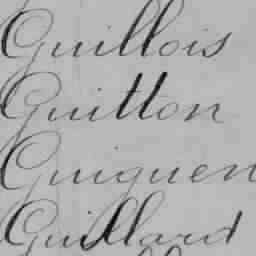 Guillois
Guitton
Guiguen
Guillard